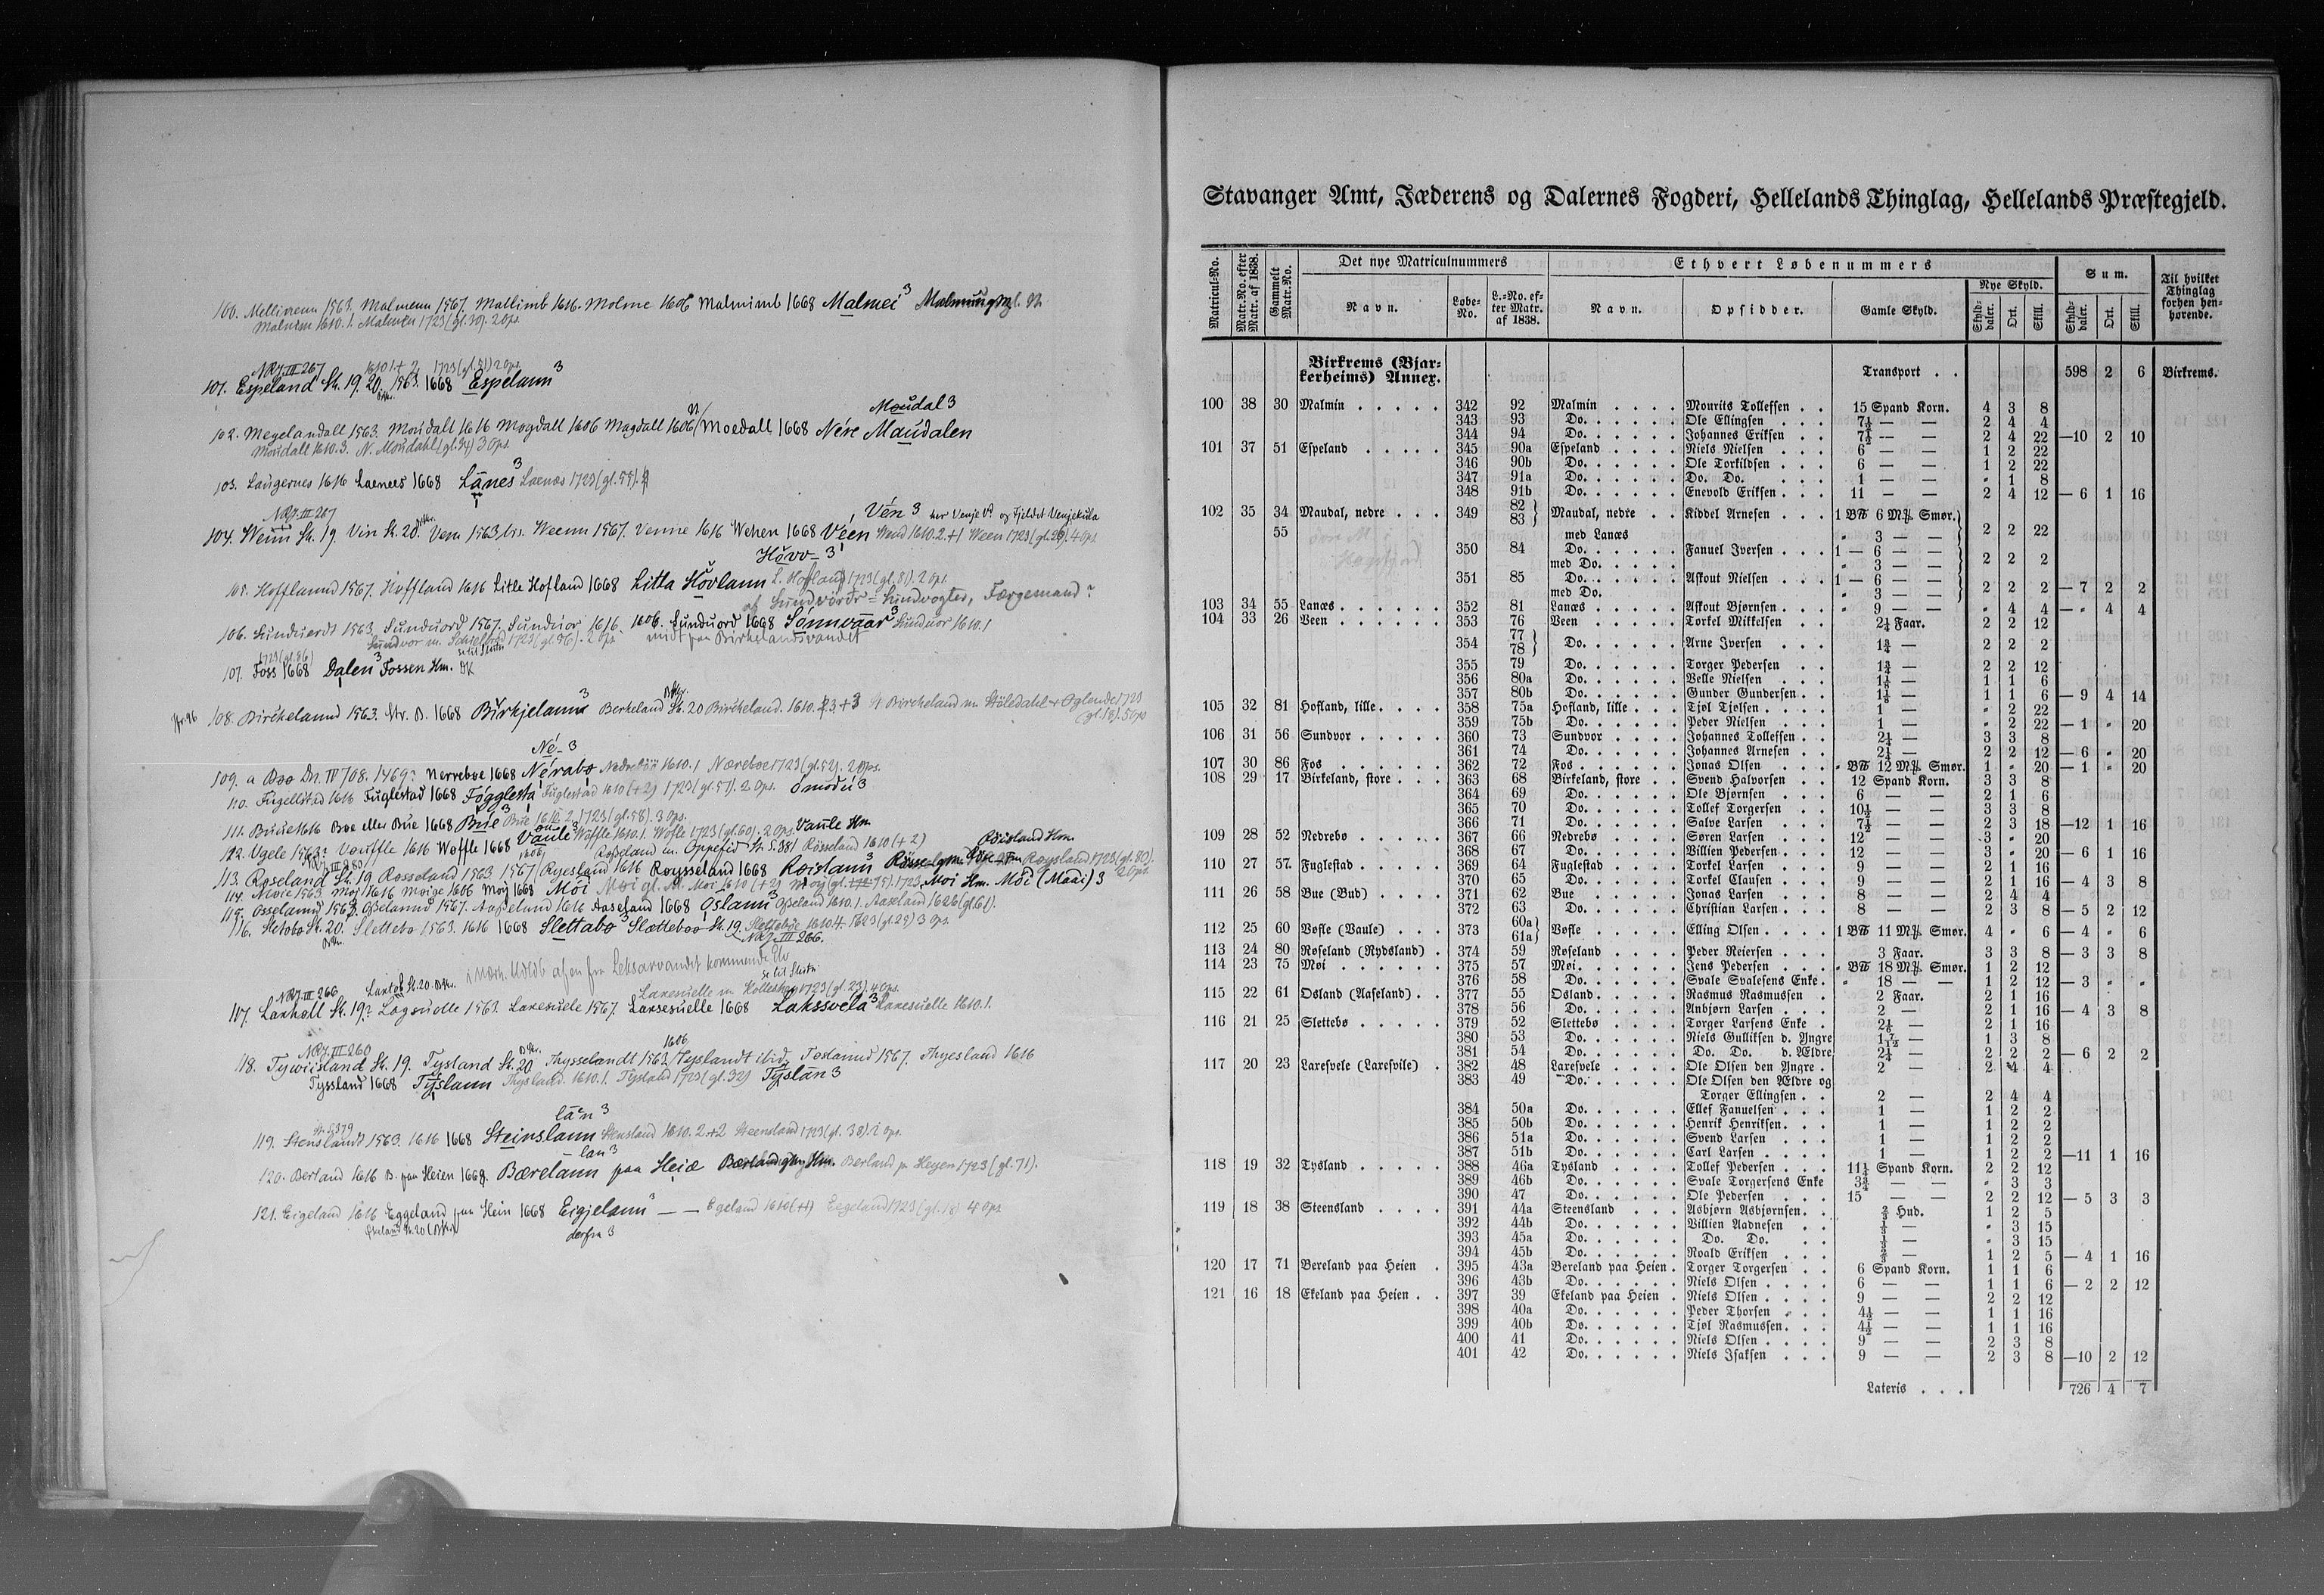 100. Mellimenn 1563. Malmenn 1567. Mallimb 1616. Molme 1606 Malmimb 1668 Malmei 3
Malmen 1610.1. Malmen 1723 (gl. 30). 2 Ops.
NRJ. III 267 1610 1+2 1723 (gl. 51) 2 Ops.
101. Espeland St. 19. 20. 1563. 1668 Espelann 3
Moudal 3
102. Megelandall 1563. Moudall 1616 Mogdall 1606 Magdall 1606 Moedall 1668 Nére Maudalen
Moudall 1610.3. N. Moudahl (gl. 34) 3 Ops.
103. Laugernes 1616 Laenees 1668 Lånes 3 Laenæs 1723 (gl. 55).
NRJ. III 267 Vén 3 her Venje Vd og Fjeldet Venjekula
104. Weim St. 19 Vin St. 20. Venn 1563, bis. Weenn 1567. Venne 1616 Wehen 1668 Véen Wend 1610.2.+1 Ween 1723 (gl. 26). 4 Ops.
Hövv- 3
105. Hofflannd 1567. Hoffland 1616 Litle Hofland 1668 Litla Hövlann L. Hofland 1723 (gl. 81). 2 Ops.
af Sundvörðr = Sundvogter, Færgemand?
106. Sunduerdt 1563. Sunduord 1567. Sunduor 1616. 1606. Sunduord 1668 Sönnvaar 3 Sunduor 1610.1
1723 (gl. 56). 2 Ops. midt paa Birkelandsvandet
1723 (gl. 86)
107. Foss 1668 Dalen 3 Fossen Hm. OK
108. Birckelannd 1563. Str. B. 1668 Birkjelann 3 Berkeland St. 20 Birckeland. 1610. 3.+3 St. Birckeland m. Stöledahl + Oglende 1723
(gl. 18). 5 Ops
Né- 3
109. a Boo Dn. IV 708. 1469? Nerreboe 1668 Nérabø Nedrebö 1610.1 Næreboe 1723 (gl. 52). 2 Ops.
110. Fugellstad 1616 Fuglestad 1668 Fögglesta Fuglestad 1610 (+2) 1723 (gl. 57). 2 Ops.
111. Buue 1616 Boe eller Bue 1668 Búe 3 Bue 1610 2. 1723 (gl. 58). 3 Ops.
112. Vgele 1563? Vouffle 1616 Woffle 1668 Vaule 3 Woffle 1610.1. Wofle 1723 (gl. 60). 2 Ops. Vaule Hm
113. Roseland St. 19 Rosseland 1563 1567 Ryesland 1616 Roysseland 1668 Roislann 3 Röisland Hm. Roysland 1723 (gl. 80).
114. Moie 1563. Moi 1616 Moige 1616 Moy 1668 Moi Moi gl. N. Moi 1610 (+2) Moy (gl. 75). 1723 Moi Hm. Moi (Maai) 3 2 Ops.
115. Osselannd 1563. Osselannd 1567. Aasselund 1616 Aaseland 1668 Oslann 3 Osseland 1610.1. Aaseland 1626 (gl. 61).
116. Sletobo St. 20. Slettebo 1563. 1616 1668 Slettabø 3 Slætteboo St. 19 Slettebøe 1610.4. 1723 (gl. 25) 3 Ops.
NRJ. III 266.
i nærh. Udlöb af en fra Leksarvandet kommende Elv
NRJ. III 266 Laxtof St. 20. Laxesuelle m Kolleskog 1723 (gl. 23). 4 Ops.
117. Laxholl St. 19? Lagsuelle 1563. Laxesuele 1567. Laxsesuelle 1668 Lakssvela 3 Laxesuelle 1610.1.
NRJ. III 260 1606
118. Tywiisland St. 19. Tysland St. 20 Thysselandt 1563 / Tyslandt ibid. Toslannd 1567. Thyesland 1616
Tyssland 1668 Tÿslann Thysland. 1610.1. Tysland 1723 (gl. 32) Tÿslån 3
lån 3
119. Stenslandt 1563. 1616 1668 Steinslann Stensland 1610. 2.+2 Steensland 1723 (gl. 38). 2 Ops.
- lan 3
120. Berland 1616 B. paa Heien 1668. Bærelann paa Heiæ Bærland Hm. Berland p. Heyen 1723 (gl. 71).
121. Eigeland 1616 Eggeland paa Hein 1668 Eigjelann 3 — — Egeland 1610 (+1) Eegeland 1723 (gl. 18) 4 Ops
Ekeland St. 20 derfra 3
Stavanger Amt, Jæderens og Dalernes Fogderi, Hellelands Thinglag, Hellelands Præstegjeld.
Matricul-No. Matr.-No. efter Matr. af 1838. Gammelt Matr.-No. Det nye Matriculnummers Ethvert Løbenummers Sum. Til hvilket Thinglag forhen henhørende.
Navn. Løbe-No. L.-No. efter Matr. af 1838. Navn. Opsidder. Gamle Skyld. Nye Skyld. Skylddaler. Ort. Skill. Skylddaler. Ort. Skill.
Birkrems (Bjarkerheims) Annex. Transport . . 598 2 6 Birkrems.
100 38 30 Malmin 342 92 Malmin Mourits Tollefsen 15 Spand Korn. 4 3 8
343 93 Do. Ole Ellingsen 7½ — — 2 4 4
344 94 Do. Johannes Eriksen 7½ — — 2 4 22 —10 2 10
101 37 51 Espeland 345 90a Espeland Niels Nielsen 6 — — 1 2 22
346 90b Do. Ole Torkildsen 6 — — 1 2 22
347 91a Do. Do. Do. 1 — — " 1 8
348 91b Do. Enevold Eriksen 11 — — 2 4 12 — 6 1 16
102 35 34 Maudal, nedre 349 82 83 Maudal, nedre Kiddel Arnesen 1 B℔ 6 M℔. Smør.
55 med Lanæs " 3 — — 2 2 22
350 84 Do. Fanuel Iversen 1 — 6 — —
med Do. " 3 — — 2 2 2
351 85 Do. Askout Nielsen 1 — 6 — —
med Do. " 3 — — 2 2 2 — 7 2 2
103 34 55 Lanæs 352 81 Lanæs Askout Bjørnsen " 9 — — " 4 4 — " 4 4
104 33 26 Veen 353 76 Veen Torkel Mikkelsen 2¼ Faar. 2 2 12
354 77 78 Do. Arne Iversen 1¾ — 2 2 2
355 79 Do. Torger Pedersen 1¾ — 2 2 12
356 80a Do. Velle Nielsen 1⅛ — 1 1 6
357 80b Do. Gunder Gundersen 1⅛ — 1 1 6 — 9 4 14
105 32 81 Hofland, lille 358 75a Hofland, lille Tjøl Tjølsen 1 — " 2 22
359 75b Do. Peder Nielsen 1 — " 2 22 — 1 " 20
106 31 56 Sundvor 360 73 Sundvor Johannes Tollefsen 2¼ — 3 3 8
361 74 Do. Johannes Arnesen 2¼ — 2 2 12 — 6 " 20
107 30 86 Fos 362 72 Fos Jonas Olsen " B℔ 12 M℔. Smør. 1 " 20 — 1 " 20
108 29 17 Birkeland, store 363 68 Birkeland, store Svend Halvorsen 12 Spand Korn. 3 3 8
364 69 Do. Ole Bjørnsen 6 — — 2 1 6
365 70 Do. Tollef Torgersen 10½ — — 3 3 8
366 71 Do. Salve Larsen 7½ — — 2 3 18 —12 1 16
109 28 52 Nedrebø 367 66 Nedrebø Søren Larsen 12 — — 3 " 20
368 67 Do. Villien Pedersen 12 — — 3 " 20 — 6 1 16
110 27 57. Fuglestad 369 64 Fuglestad Torkel Larsen 9 — — 2 1 16
370 65 Do. Torkel Clausen 9 — — 2 1 16 — 4 3 8
111 26 58 Bue (Bud) 371 62 Bue Jonas Larsen 8 — — 2 4 4
372 63 Do. Christian Larsen 8 — — 2 3 8 — 5 2 12
112 25 60 Vofle (Vaule) 373 60a 61a Vofle Elling Olsen 1 B℔ 11 M℔. Smør. 4 " 6 — 4 " 6
113 24 80 Røseland (Rydsland) 374 59 Røseland Peder Reiersen 3 Faar. 3 3 8 — 3 3 8
114 23 75 Møi 375 57 Møi Jens Pedersen " B℔ 18 M℔. Smør. 1 2 12
376 58 Do. Svale Svalesens Enke " 18 — — 1 2 12 — 3 " "
115 22 61 Osland (Aaseland) 377 55 Osland Rasmus Rasmussen 2 Faar. 2 1 16
378 56 Do. Anbjørn Larsen 2 — 2 1 16 — 4 3 8
116 21 25 Slettebø 379 52 Slettebø Torger Larsens Enke 2⅙ — 2 1 16
380 53 Do. Niels Gulliksen d. Yngre 1 7/12 — 1 3 8
381 54 Do. Do. Do. d. Ældre 2¼ — 2 2 2 — 6 2 2
117 20 23 Laxesvele (Laxesvile) 382 48 Laxesvele Ole Olsen den Yngre 2 — 2 4 4
383 49 Do. Ole Olsen den Ældre og
Torger Ellingsen 2 — 2 4 4
384 50a Do. Ellef Fanuelsen 1 — 1 2 2
385 50b Do. Henrik Henriksen 1 — 1 2 2
386 51a Do. Svend Larsen 1 — 1 2 2
387 51b Do. Carl Larsen 1 — 1 2 2 —11 1 16
118 19 32 Tysland 388 46a Tysland Tollef Pedersen 11¼ Spand Korn. 2 2 12
389 46b Do. Svale Torgersens Enke 3¾ — — " 3 3
390 47 Do. Ole Pedersen 15 — — 2 2 12 — 5 3 3
119 18 38 Steensland 391 44a Steensland Asbjørn Asbjørnsen ⅔ Hud. 1 2 5
392 44b Do. Villien Aadnesen ⅓ — " 3 15
393 45a Do. Do. Do. ⅓ — " 3 15
394 45b Do. Roald Eriksen ⅔ — 1 2 5 — 4 1 16
120 17 71 Bereland paa Heien 395 43a Bereland paa Heien Torger Torgersen 6 Spand Korn. 1 1 6
396 43b Do. Niels Olsen 6 — — 1 1 6 — 2 2 12
121 16 18 Ekeland paa Heien 397 39 Ekeland paa Heien Niels Olsen 9 — — 2 2 12
398 40a Do. Peder Thorsen 4½ — — 1 1 16
399 40b Do. Tjøl Rasmussen 4½ — — 1 1 16
400 41 Do. Niels Olsen 9 — — 2 3 8
401 42 Do. Niels Isaksen 9 — — 2 3 8 —10 2 12
Lateris . . . 726 4 7